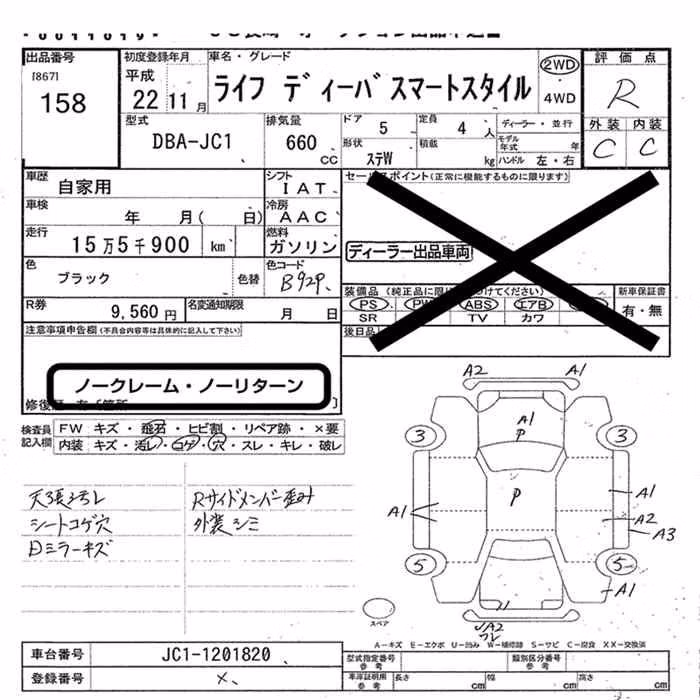 出品番号
[867]
158
初度登録年月
平成
22 11月
車名・グレード
ライフ ディーバスマートスタイル
2WD
4WD
評価点
R
外装 内装
C C
型式
DBA-JC1
排気量
660
CC
ドア
5
定員
4 人
ディーラー・並行
モデル年式 年
形状
ステW
積載
kg
ハンドル 左・右
車歴
自家用
シフト
IAT
車検
年 月( 日)
冷房
AAC
走行
15万5千900 km
燃料
ガソリン
色
ブラック
色替
色コード
B92P
R券
9,560円
名変通知期限
月 日
セールスポイント(正常に機能するものに限ります)
ディーラー出品車両
装備品
PS PW ABS エアB
SR TV カワ
新車保証書
有・無
後日品
注意事項申告欄(不具合内容等は具体的に記入して下さい)
ノークレーム・ノーリターン
検査員記入欄
FW キズ・飛石・ヒビ割・リペア跡・×要
内装 キズ・汚レ・コゲ・穴・スレ・キレ・破レ
天張汚レ
シートコゲ穴
日ミラーキズ
Rサイドメンバー歪み
外装シミ
A2 A1
A1
P
3 3
P
A1
A1
A2
A3
5 5
A1
A2
スペア
A-キズ E-エクボ U-凹み W-補修跡 S-サビ C-腐食 XX-交換済
車台番号
JC1-1201820
登録番号
×
型式指定番号
参考
類別区分番号
参考
車庫証明用
参考
長さ cm
幅 cm
高さ cm